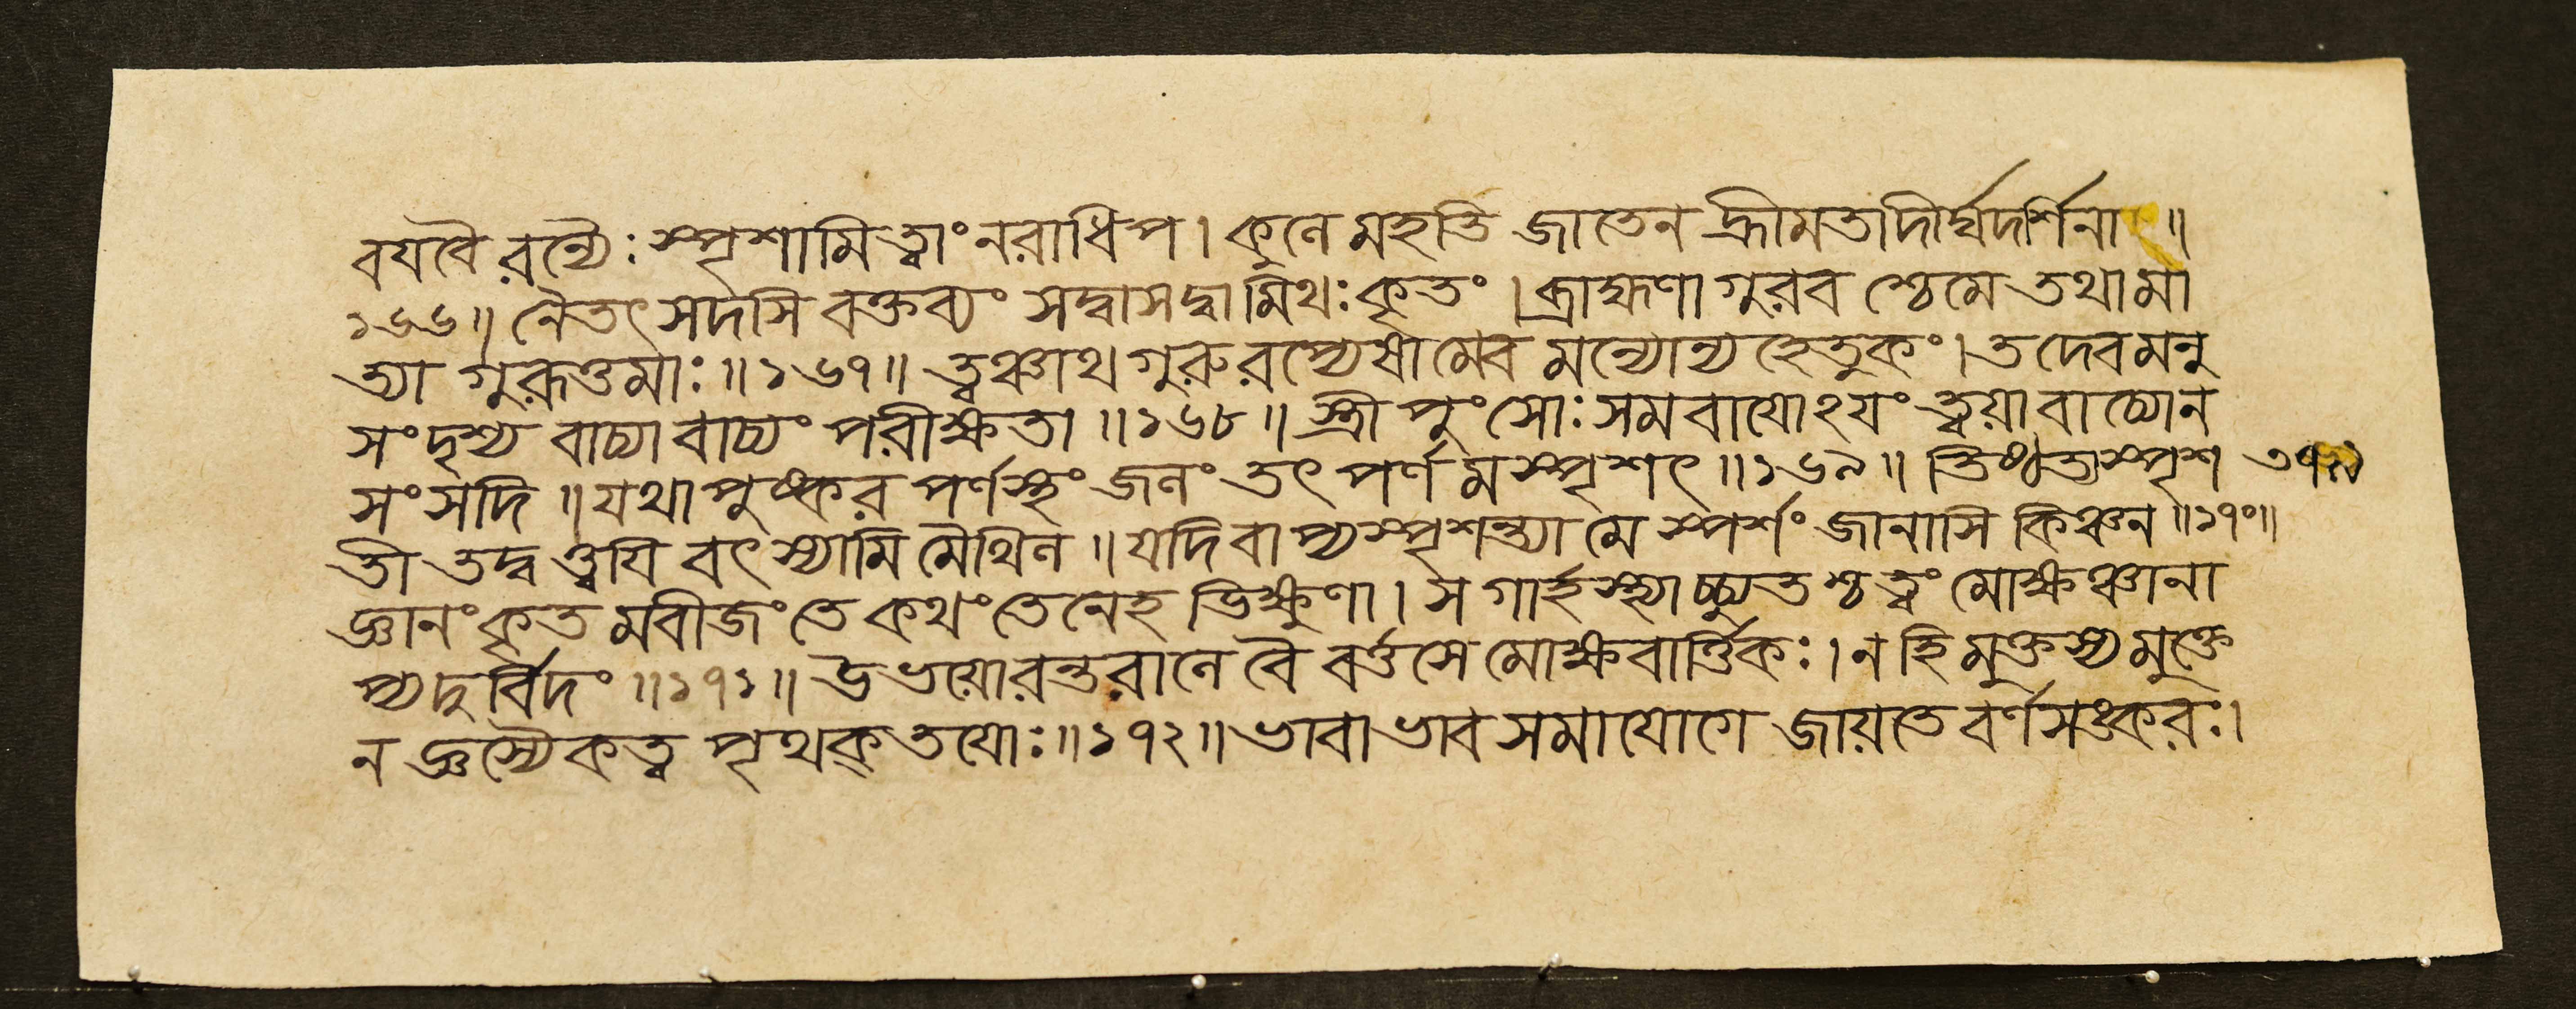 বযবৈ রন্যৈঃ স্পৃশামি ত্বাং নরাধিপ । কুলে মহতি জাতেন হ্রীমতা দীর্ঘদর্শিনা ॥
১৬৬ ॥ নৈতৎ সদসি বক্তব্যং সদ্বাসদ্বা মিথঃ কৃতং । ব্রাহ্মণা গুরব শ্চেমে তথামা
ত্যা গুরূত্তমাঃ ॥ ১৬৭ ॥ ত্বঞ্চাথ গুরুরপ্যেষামেব মন্যোন্য হেতুকং । তদেবমনু
সংদৃশ্য বাচ্যাবাচ্যং পরীক্ষতা ॥ ১৬৮ ॥ স্ত্রীপুংসোঃ সমবাযোঽযং ত্বয়া বাচ্যোন
সংসদি ॥ যথা পুষ্কর পর্ণস্থং জলং তৎ পর্ণমস্পৃশৎ ॥ ১৬৯ ॥ তিষ্ঠত্যস্পৃশ
তী তদ্বত্ত্বযি বৎস্যামি মৈথিল ॥ যদি বাপ্যস্পৃশন্ত্যা মে স্পর্শং জানাসি কিঞ্চন ॥ ১৭০ ॥
জ্ঞানং কৃতমবীজং তে কথং তেনেহ ভিক্ষুণা । স গার্হস্থ্যাচ্চ্যুতশ্চ ত্বং মোক্ষঞ্চানা
প্যদুর্বিদং ॥ ১৭১ ॥ উভয়োরন্তরালে বৈ বর্ত্তসে মোক্ষবার্ত্তিকঃ । ন হি মুক্তস্য মুক্তে
ন জ্ঞস্যৈকত্ব পৃথক্ তযোঃ ॥ ১৭২ ॥ ভাবাভাব সমাযোগে জায়তে বর্ণসঙ্করঃ ।